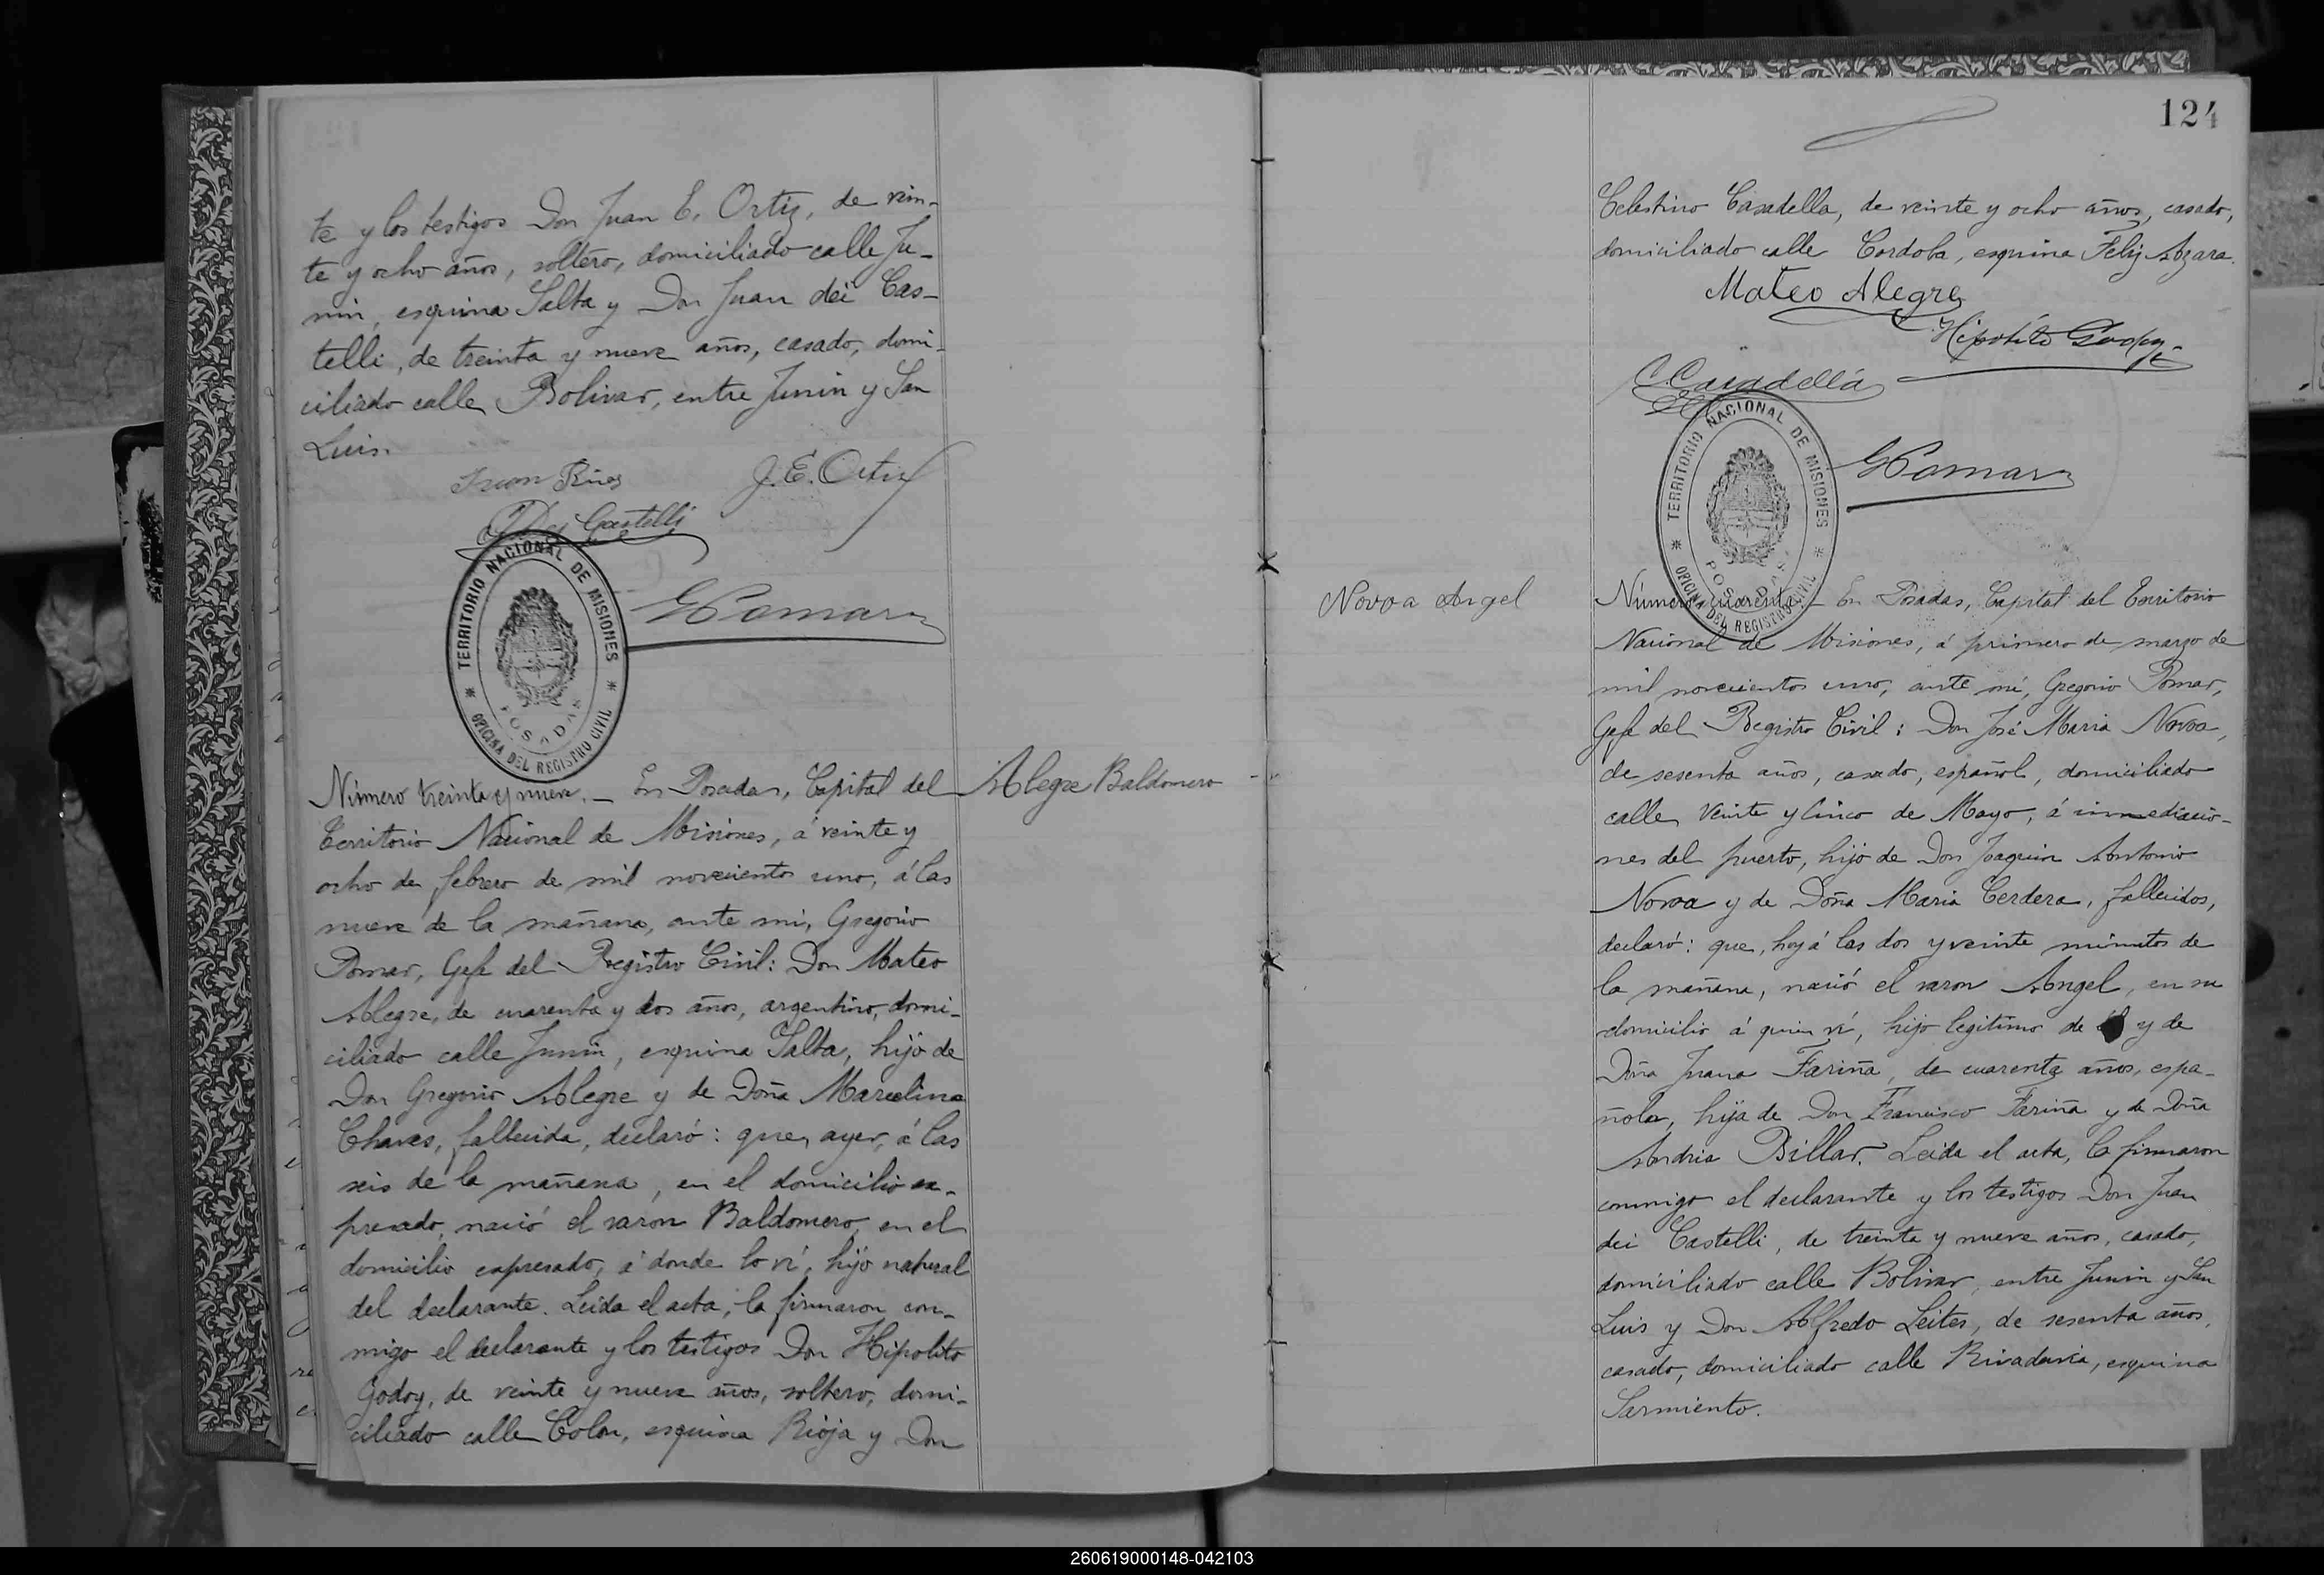 te y los testigos Don Juan E. Ortiz, de vein-
te y ocho años, soltero, domiciliado calle Ju-
nin, esquina Salta y Don Juan dei Cas-
telli, de treinta y nueve años, casado, domi-
ciliado calle Bolivar, entre Junin y San
Luis.
Juan Rios
J. E. Ortiz
Dei Castelli
TERRITORIO NACIONAL DE MISIONES
POSADAS
OFICINA DEL REGISTRO CIVIL
GPomar
Número treinta y nueve. — En Posadas, Capital del
Alegre Baldomero
Territorio Nacional de Misiones, á veinte y
ocho de febrero de mil novecientos uno, á las
nueve de la mañana, ante mi, Gregorio
Pomar, Gefe del Registro Civil: Don Mateo
Alegre, de cuarenta y dos años, argentino, domi-
ciliado calle Junin, esquina Salta, hijo de
Don Gregorio Alegre y de Doña Marcelina
Chaves, fallecida, declaró: que, ayer, á las
seis de la mañana, en el domicilio ex-
presado, nació el varon Baldomero, en el
domicilio expresado, á donde lo ví, hijo natural
del declarante. Leida el acta, la firmaron con-
migo el declarante y los testigos Don Hipolito
Godoy, de veinte y nueve años, soltero, domi-
ciliado calle Colon, esquina Rioja y Don
124
Celestino Casadella, de veinte y ocho años, casado,
domiciliado calle Cordoba, esquina Felix Azara.
Mateo Alegre
Hipólito Godoy
C. Casadella
TERRITORIO NACIONAL DE MISIONES
POSADAS
OFICINA DEL REGISTRO CIVIL
GPomar
Novoa Angel
Número cuarenta. — En Posadas, Capital del Territorio
Nacional de Misiones, á primero de marzo de
mil novecientos uno, ante mi, Gregorio Pomar,
Gefe del Registro Civil: Don José Maria Novoa,
de sesenta años, casado, español, domiciliado
calle Veinte y Cinco de Mayo, á inmediacio-
nes del puerto, hijo de Don Joaquin Antonio
Novoa y de Doña Maria Cerdera, fallecidos,
declaró: que, hoy á las dos y veinte minutos de
la mañana, nació el varon Angel, en su
domicilio á quien ví, hijo legitimo de él y de
Doña Juana Fariña, de cuarenta años, espa-
ñola, hija de Don Francisco Fariña y de Doña
Andria Billar. Leida el acta, la firmaron
conmigo el declarante y los testigos Don Juan
dei Castelli, de treinta y nueve años, casado,
domiciliado calle Bolivar, entre Junin y San
Luis y Don Alfredo Leites, de sesenta años,
casado, domiciliado calle Rivadavia, esquina
Sarmiento.
260619000148-042103